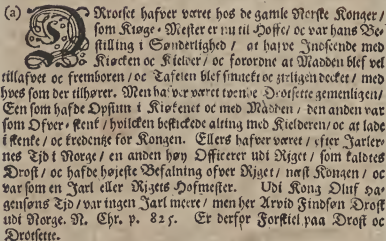 (a) DRrotset hafver været hos de gamle Norske Konger /
som Kiøge-Mester er nu til Hoffe / oc var hans Be-
stilling i Sønderlighed / at hafve Indseende med
Kiøcken oc Kielder / oc forordne at Madden blef vel
tillafvet oc fremboren / oc Tafelen blef smuckt oc zirligen decket / med
hves som der tilhører. Men hafver været tvende Drotsette gemenligen /
Een som hafde Opsiun i Kiøkenet oc med Madden / den anden var
som Ofver-skenk / hvilcken bestickede alting med Kielderen / oc at lade
iskenke / oc kredentze for Kongen. Ellers hafver været / efter Jarler-
nes Tjd i Norge / en anden høy Officerer udi Rjget / som kaldtes
Drost / oc hafde højeste Befalning ofver Rjget / næst Kongen / oc
var som en Jarl eller Rigets Hofmester. Udi Kong Oluf Ha-
gensøns Tjd / var ingen Jarl meere / men her Arvid Findsøn Drost
udi Norge. N. Chr. p. 825. Er derfor Forskiel paa Drost oc
Drotsette.